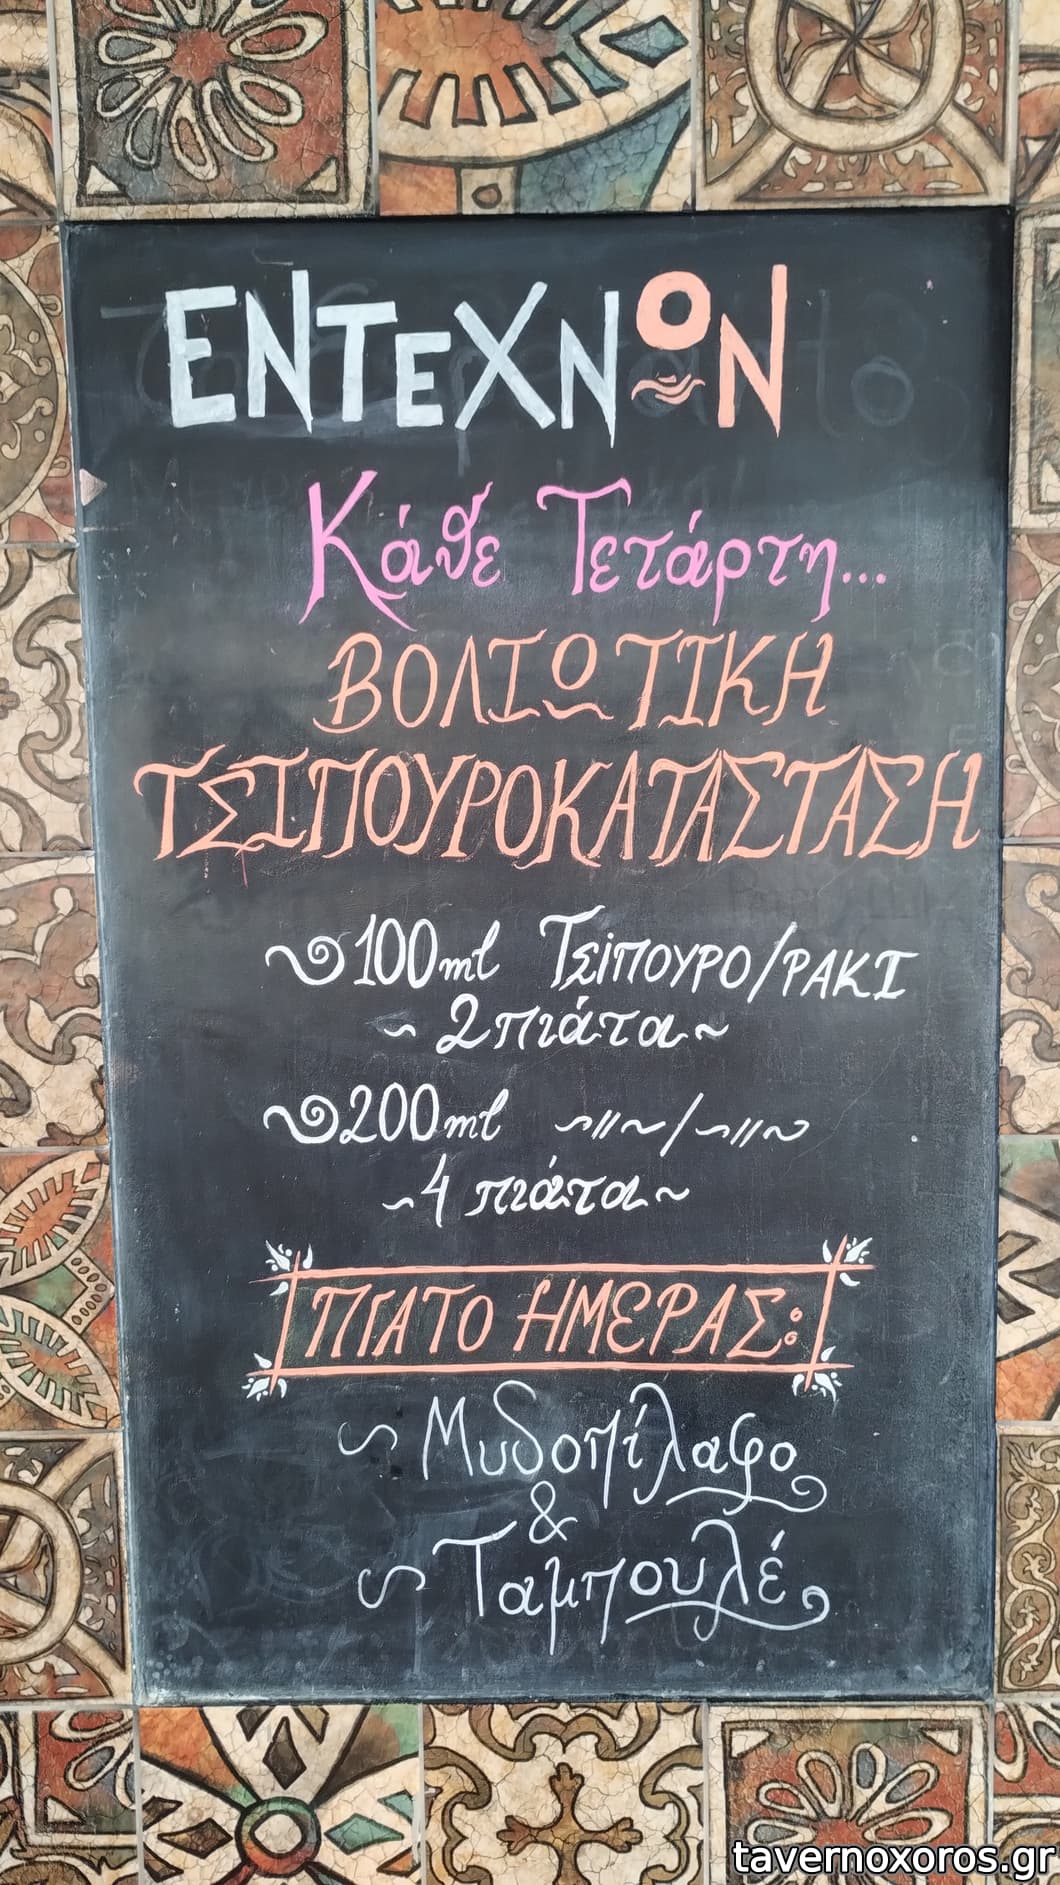 ΕΝΤΕΧΝΩΝ
Κάθε Τετάρτη...
ΒΟΛΙΩΤΙΚΗ
ΤΣΙΠΟΥΡΟΚΑΤΑΣΤΑΣΗ
100ml Τσίπουρο/ΡΑΚΙ
~ 2 πιάτα ~
200ml ~//~/~//~
~ 4 πιάτα ~
ΠΙΑΤΟ ΗΜΕΡΑΣ:
Μυδοπίλαφο
&
Ταμπουλέ
tavernoxoros.gr